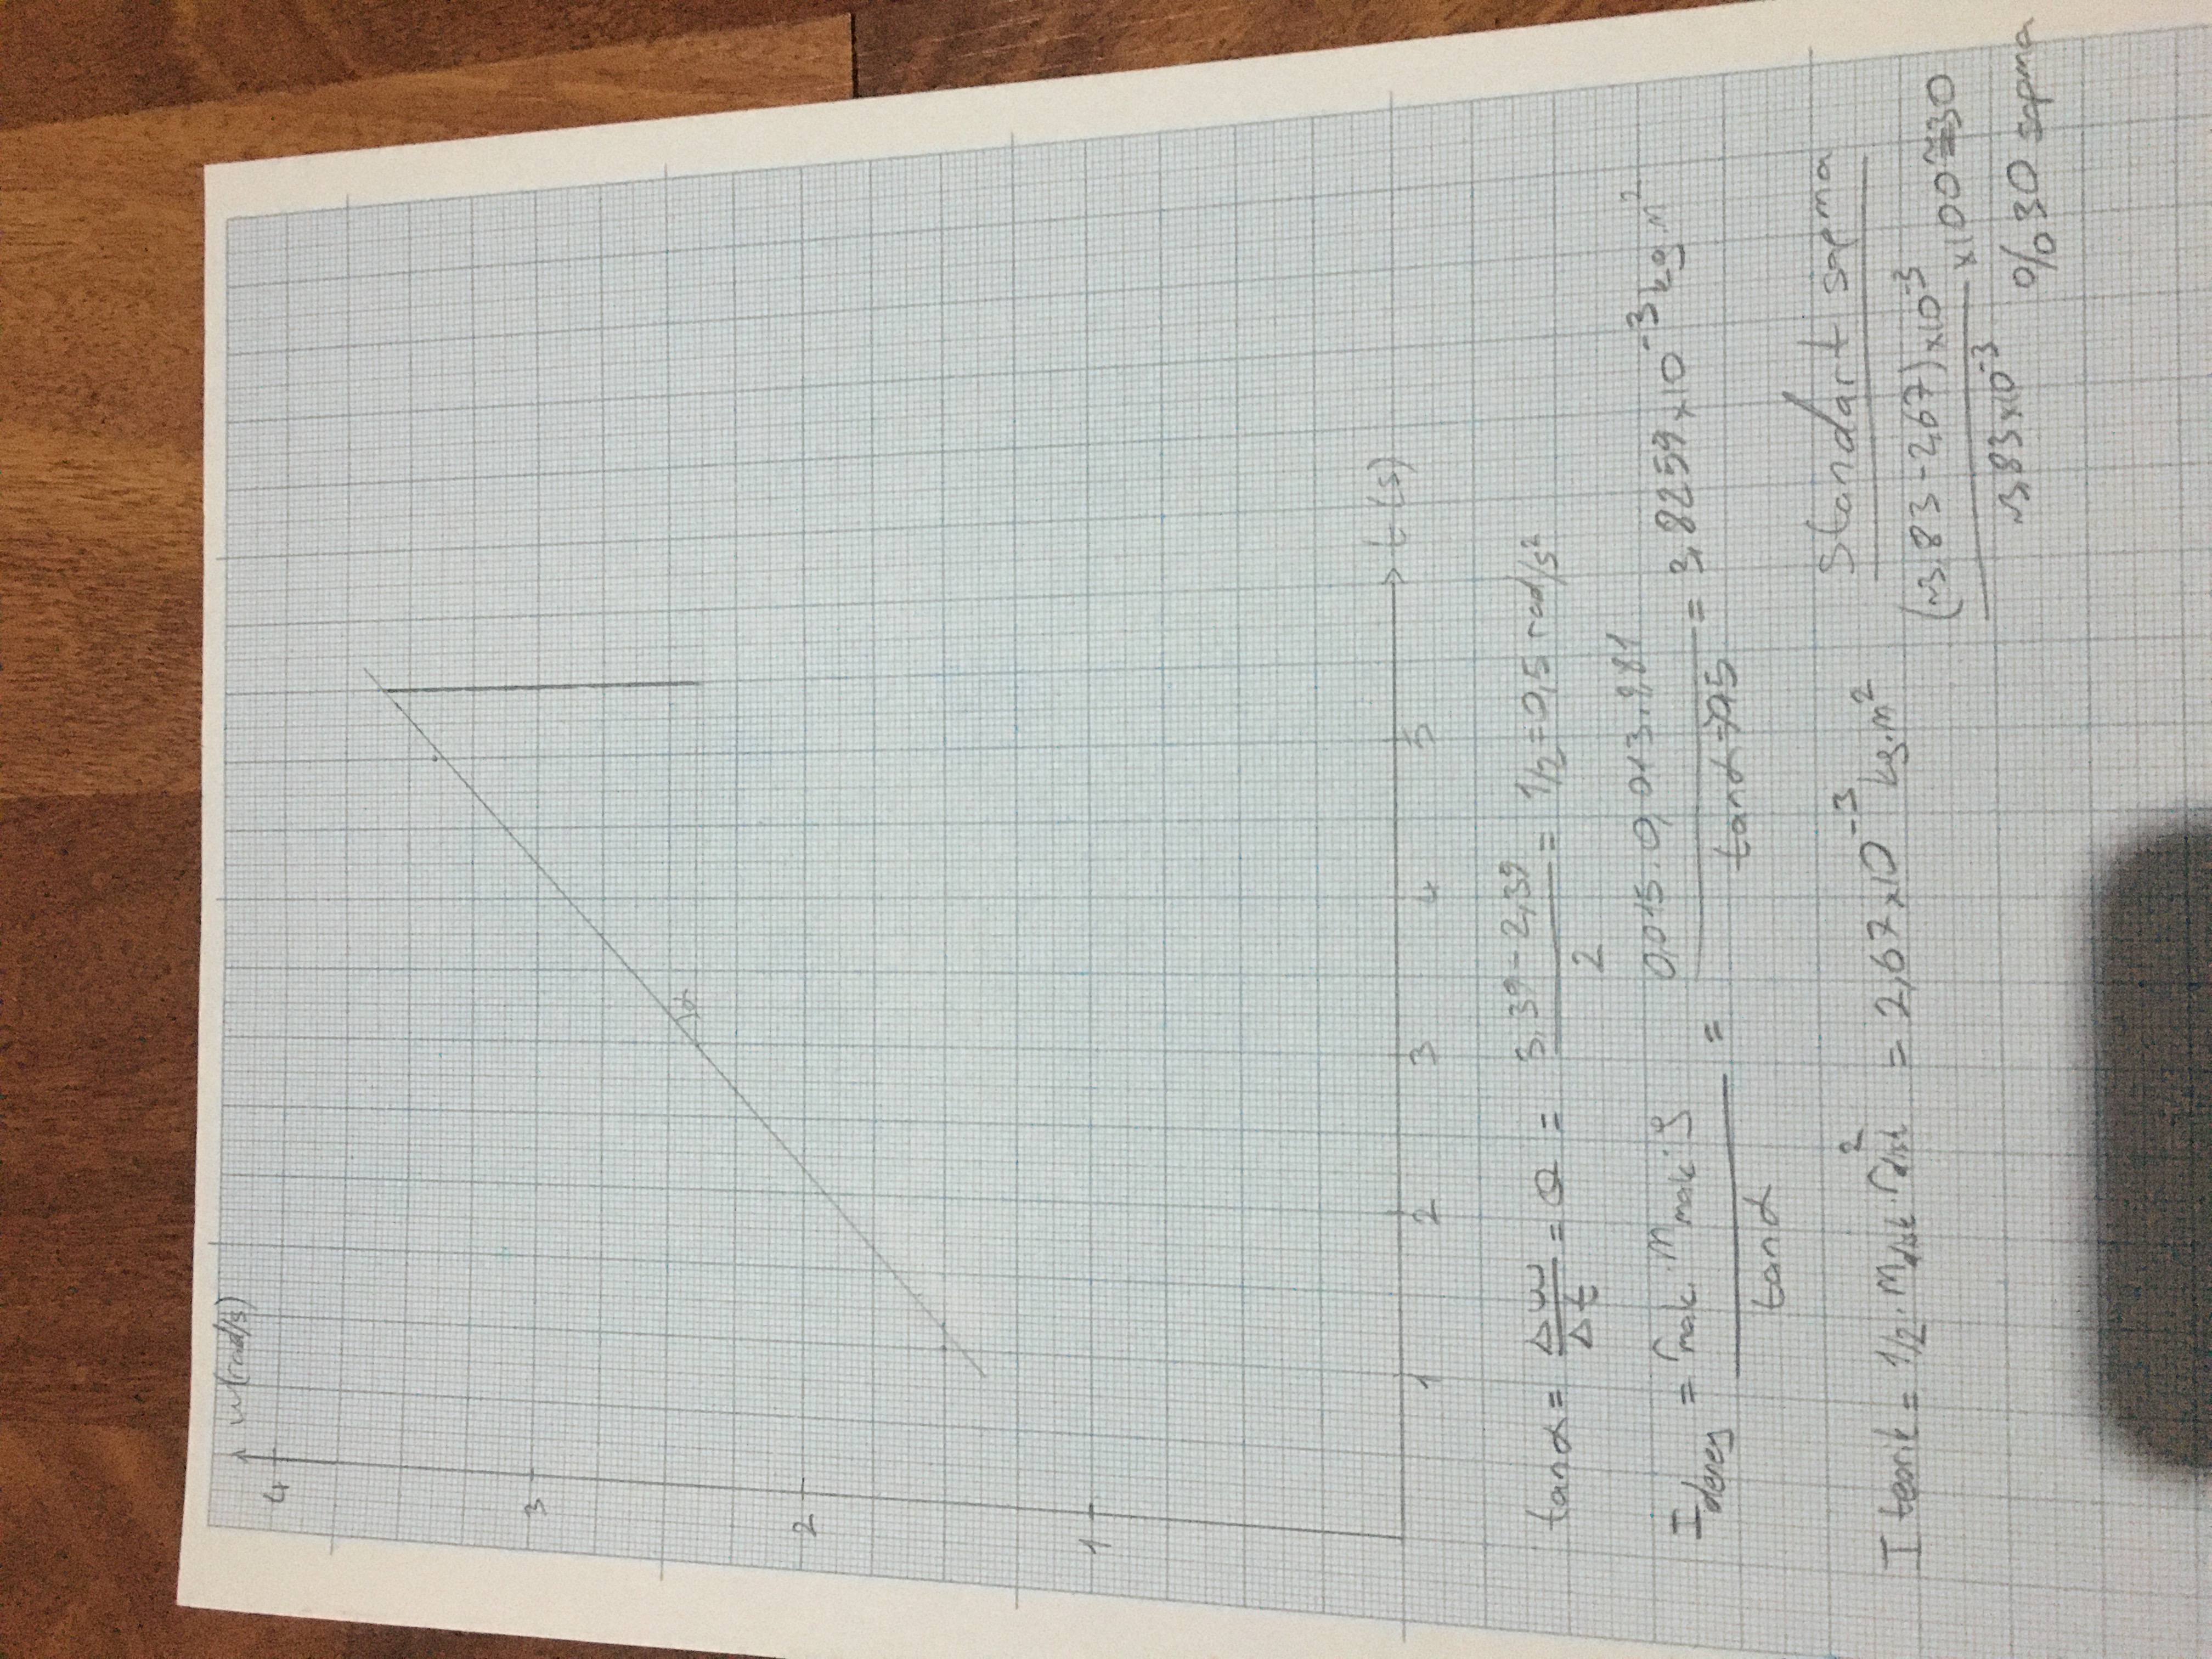 w(rad/s)
4
3
α
2
1
1 2 3 4 5 t (s)
tanα = Δw/Δt = Q = 3,39-2,39/2 = 1/2 = 0,5 rad/s²
I deney = rmak. mmak. g/tanα = 0,015. 0,013. 9,81/tanα→0,5 = 3,8259 x 10⁻³ kg.m²
I teorik = 1/2. mdisk. rdisk² = 2,67 x 10⁻³ kg.m²
Standart sapma
(~3,83-2,67) x10⁻³/~3,83x10⁻³ x100 ≅ 30
%30 sapma